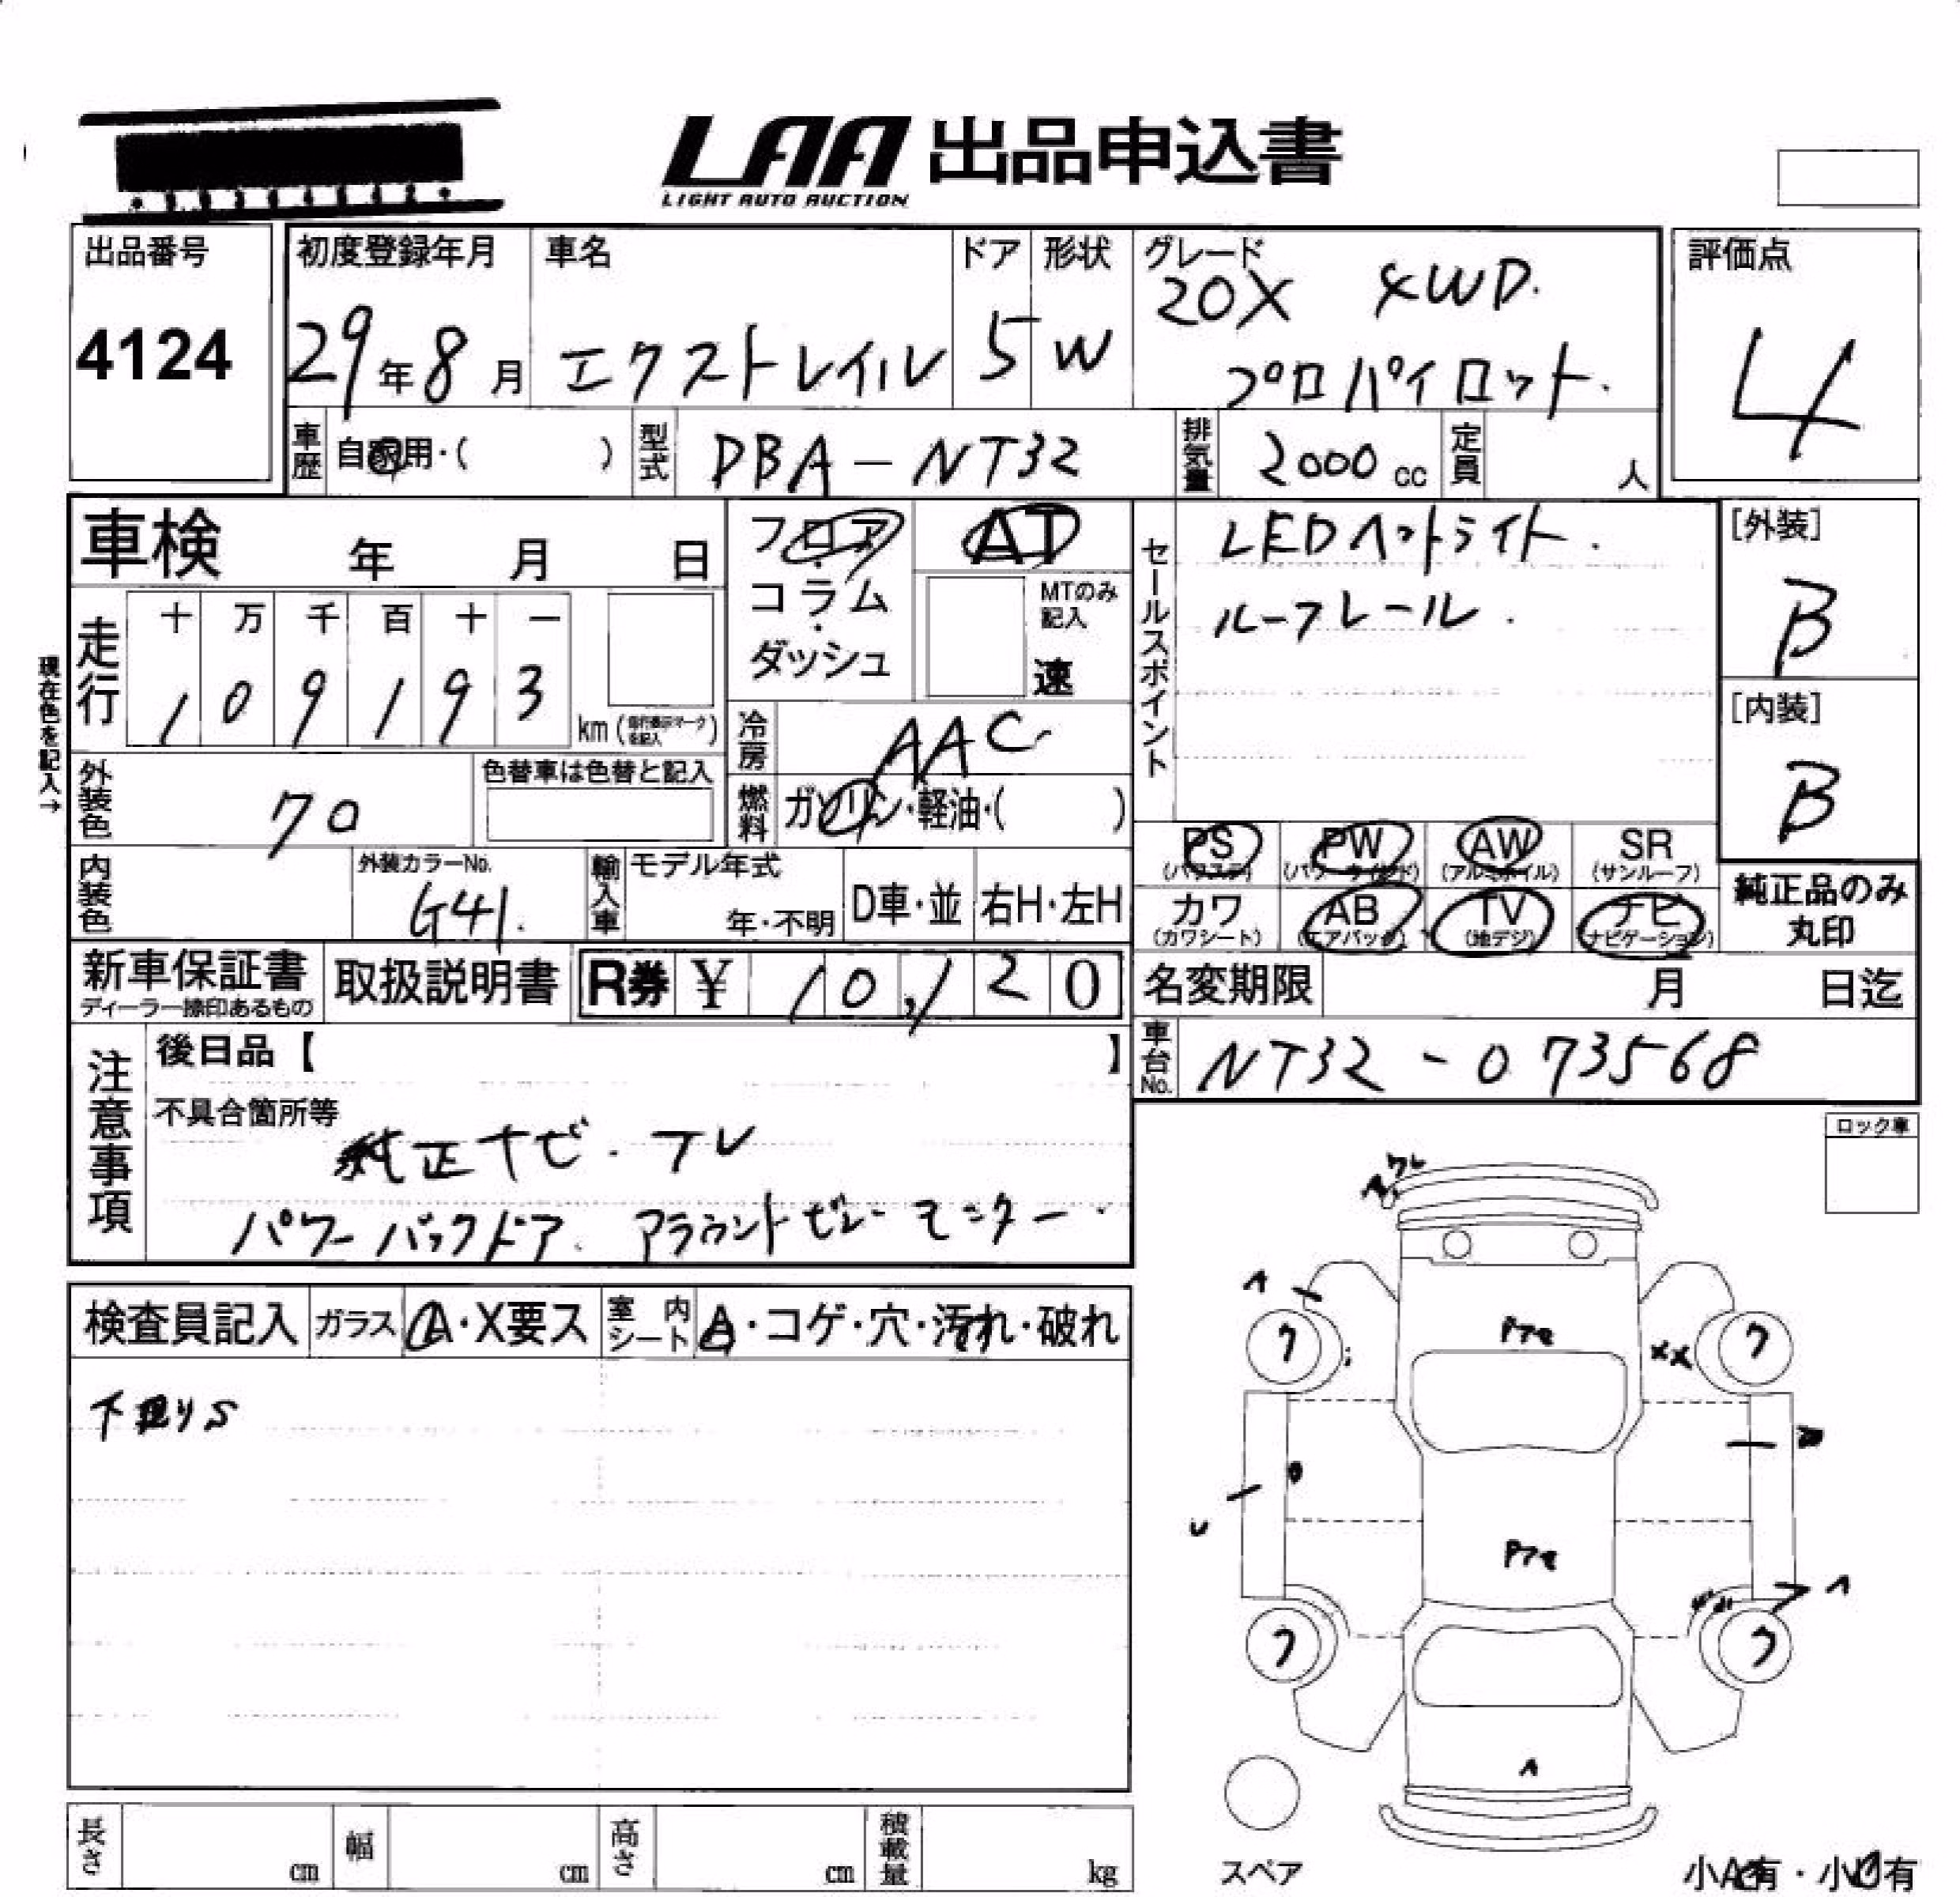 LAA 出品申込書
LIGHT AUTO AUCTION
出品番号
4124
初度登録年月
29年8月
車名
エクストレイル
ドア
5
形状
W
グレード
20X 4WD.
プロパイロット.
評価点
4
車歴
自家用・( )
型式
DBA-NT32
排気量
2000cc
定員
人
車検 年 月 日
フロア
コラム
ダッシュ
AT
MTのみ
記入
速
現在色を記入→
走行
十 万 千 百 十 一
1 0 9 1 9 3
km
冷房
AAC
燃料
ガソリン・軽油・( )
セールスポイント
LEDヘットライト.
ルーフレール.
[外装]
B
[内装]
B
外装色
色替車は色替と記入
内装色
外装カラーNo.
G41.
輸入車
モデル年式
年・不明
D車・並
右H・左H
PS
(パワステ)
PW
(パワーウインド)
AW
(アルミホイル)
SR
(サンルーフ)
カワ
(カワシート)
AB
(エアバック)
TV
(地デジ)
ナビ
(ナビゲーション)
純正品のみ
丸印
新車保証書
ディーラー捺印あるもの
取扱説明書
R券 ¥ 10,120
名変期限 月 日迄
車台No.
NT32-073568
注意事項
後日品【 】
不具合箇所等
純正ナビ. TV
パワーバックドア. アラウントビューモニター.
ロック車
検査員記入
ガラス
A・X要ス
室内シート
A・コゲ・穴・汚れ・破れ
下回りS
長さ cm
幅 cm
高さ cm
積載量 kg
スペア
小A有・小U有